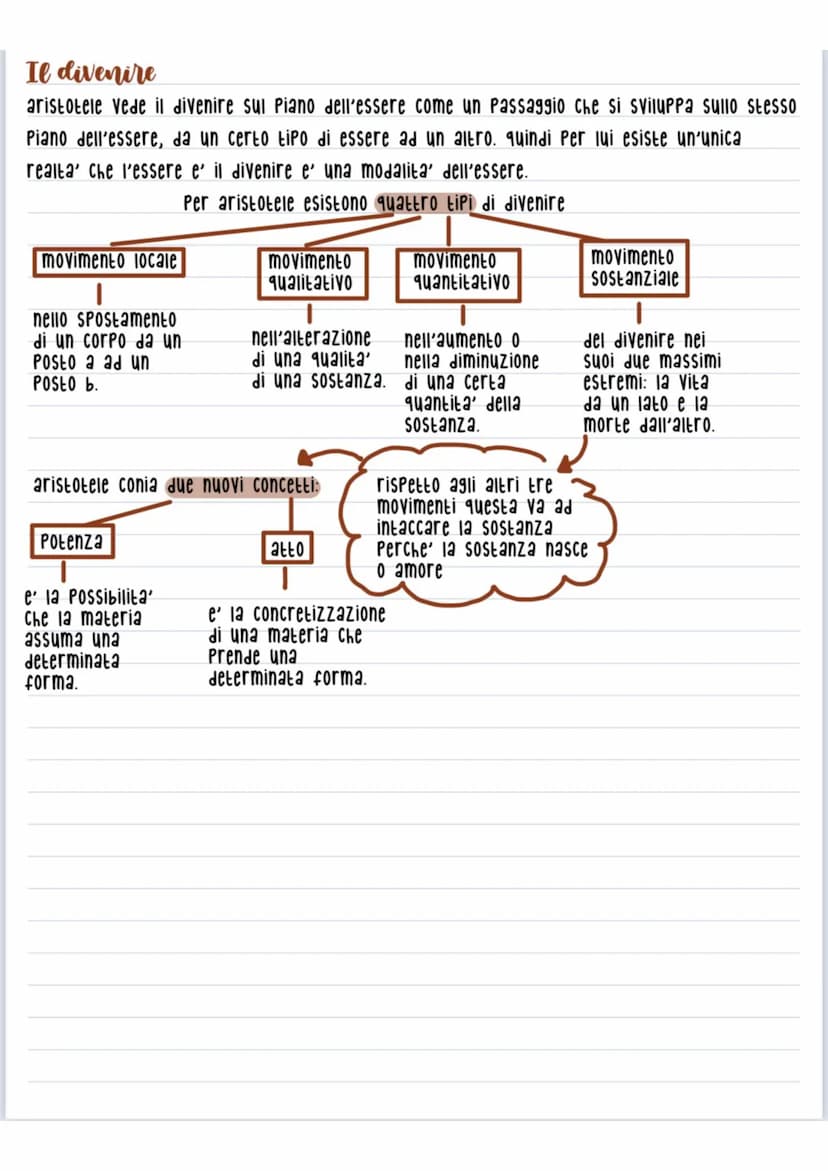 Il divenire
aristotele vede il divenire sul piano dell'essere come un passaggio che si sviluppa sullo stesso
piano dell'essere, da un certo tipo di essere ad un altro. quindi per lui esiste un'unica
realta' che l'essere e' il divenire e' una modalita' dell'essere.
per aristotele esistono quattro tipi di divenire
movimento locale
nello spostamento
di un corpo da un
posto a ad un
posto b.
movimento
qualitativo
nell'alterazione
di una qualita'
di una sostanza.
movimento
quantitativo
nell'aumento o
nella diminuzione
di una certa
quantita' della
sostanza.
movimento
sostanziale
del divenire nei
suoi due massimi
estremi: la vita
da un lato e la
morte dall'altro.
rispetto agli altri tre
movimenti questa va ad
intaccare la sostanza
perche' la sostanza nasce
o amore
aristotele conia due nuovi concetti:
potenza
e' la possibilita'
che la materia
assuma una
determinata
forma.
atto
e' la concretizzazione
di una materia che
prende una
determinata forma.